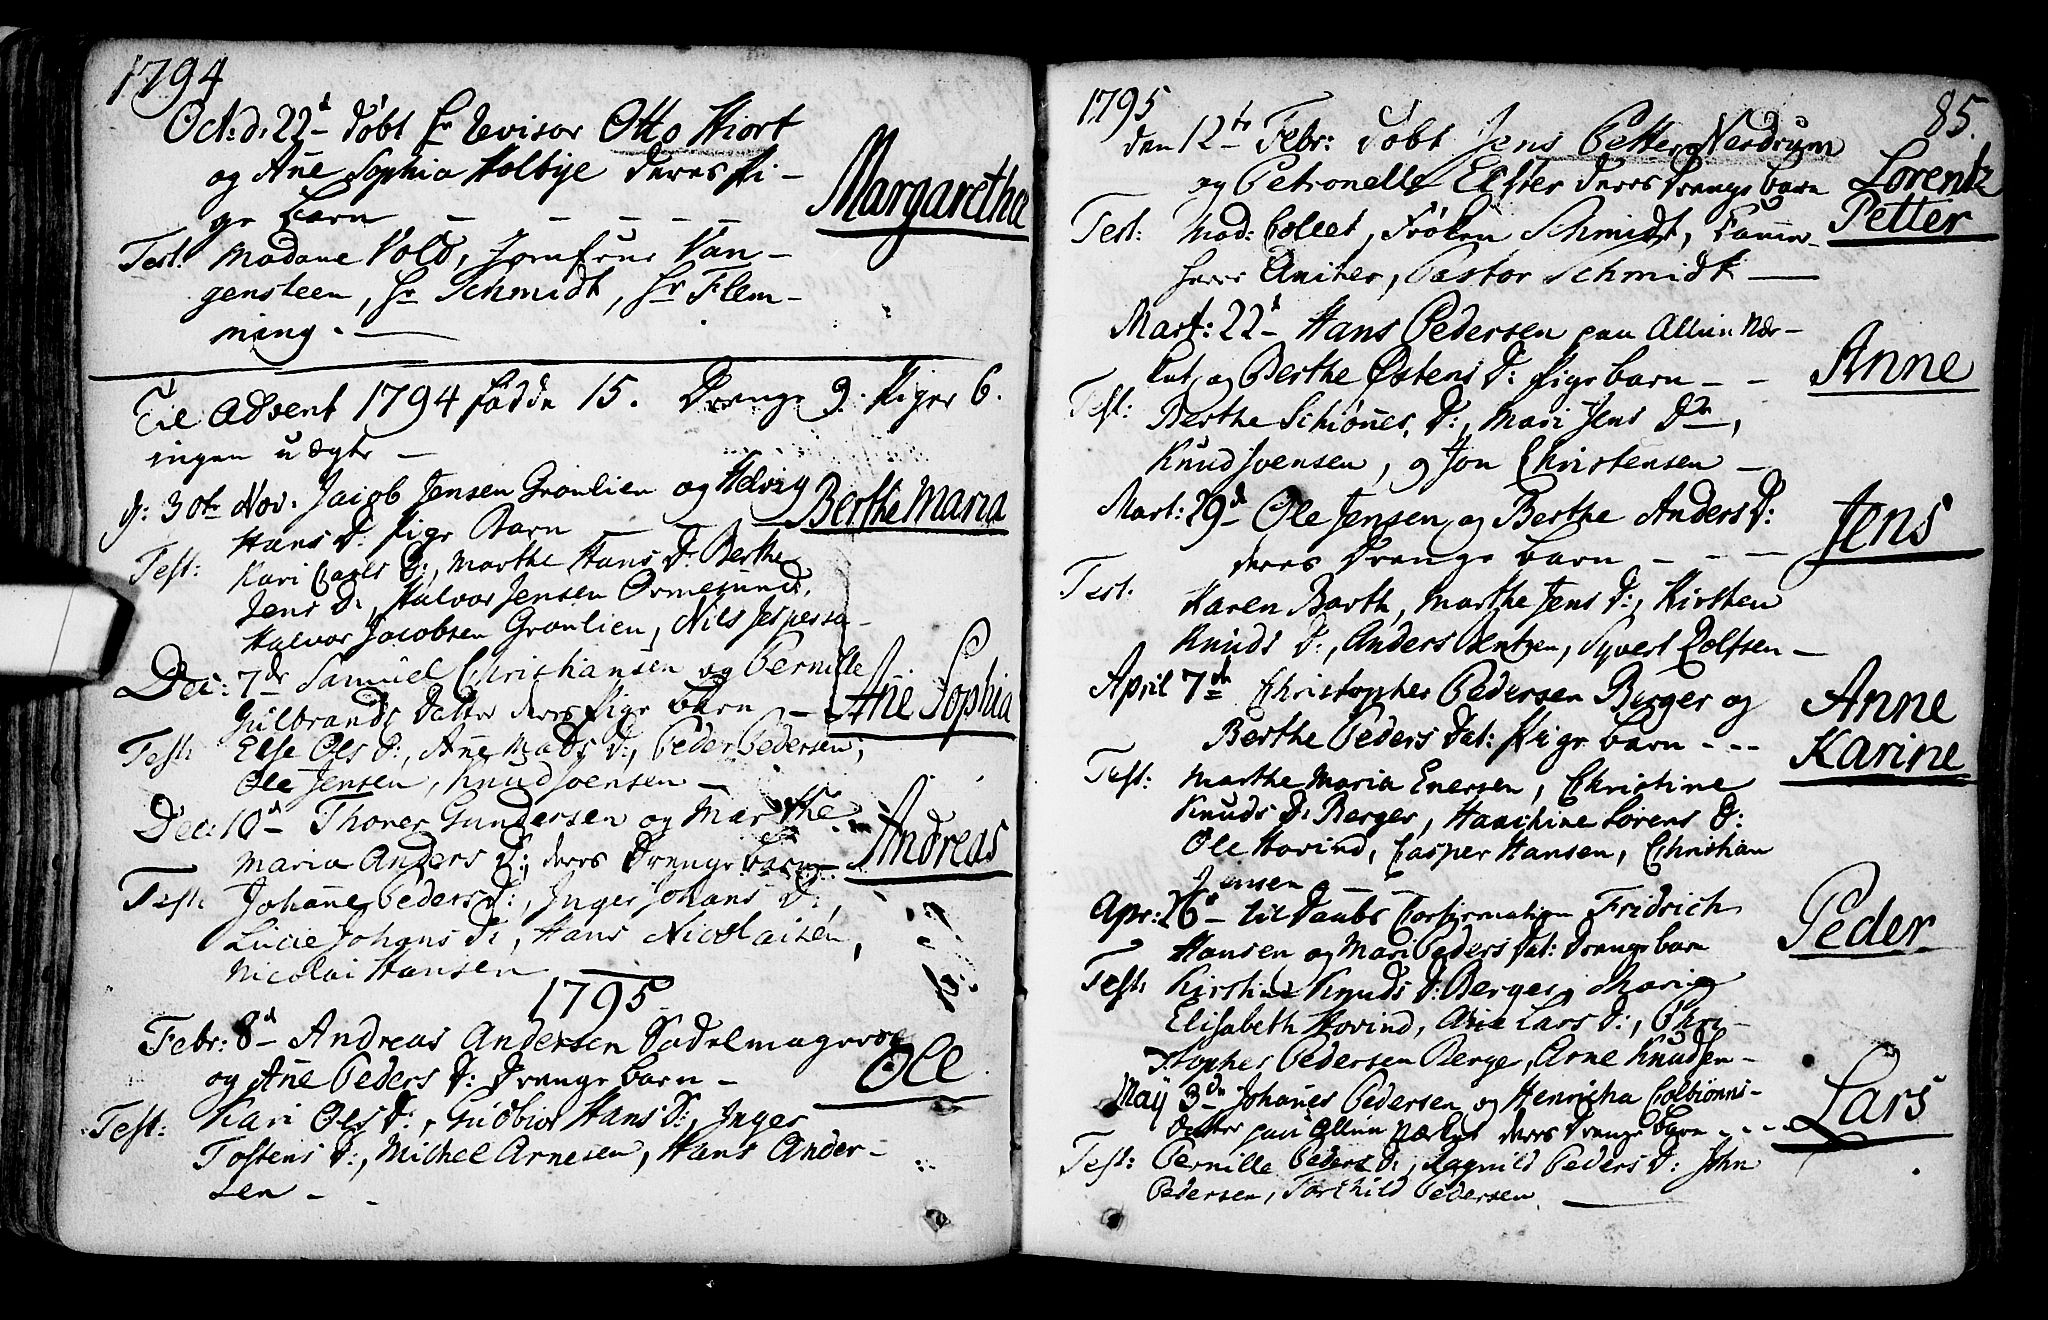 1794
Oct: d. 22d døbt Hr Revisor Otto Hiort
og Añe Sophia Holbye deres Pi-
ge Barn - - - - -
Margaretha
Test: Madame Vold, Jomfrue Van-
gensteen, Hr Schmidt, Hr Flem-
ming. -
Til Advent 1794 fødde 15. Drenge 9. Piger 6.
ingen uægte -
d: 30te Nov. Jacob Jensen Gronlien og Hedvig
Hans D: Pige Barn
Berthe Maria
Test: Kari Carls D:, Marthe Hans D: Berthe
Jens D:, Halvor Jensen Ormesund,
Halvor Jacobsen Gronlien, Nils Jespersø-
Dec: 7de Samuel Christiansen og Pernille
Gulbrands Datter deres Pige Barn -
Añe Sophia
Test: Else Ols D:, Añe Mads D:, Peder Pedersen,
Ole Jensen, Knud Joensen -
Dec: 10d Thoner Gundersen og Marthe
Maria Anders D: deres Drenge barn -
Andreas
Test: Johañe Peders D:, Inger Johans D:,
Lucie Johans D:, Hans Nicolaisen,
Nicolai Hansen
1795
Febr: 8d Andreas Andersen Sadelmager
og Añe Peders D: Drenge barn -
Ole
Test: Kari Ols D:, Gudbior Hans D:, Inger
Tostens D:, Michel Arnesen, Hans Ander-
sen -
1795
85.
den 12te Febr: døbt Jens Petter Nerdrum
og Petronelle deres Drenge barn
Lorentz
Petter
Test: Mad: Collet, Frøken Schmidt, Kamer-
herr Anker, Pastor Schmidt -
Mart: 22d Hans Pedersen paa Allun Vær-
ket, og Berthe Østens D: Pige barn - -
Anne
Test: Berthe Schiønes D:, Mari Jens Dr,
Knud Joensen, og Jon Christensen -
Mart: 29d Ole Jensen, og Berthe Anders D:
deres Drenge barn - - -
Jens
Test. Karen Barth, Marthe Jens D:, Kirsten
Knuds D:, Anders Bentzen, Syvert Rolfsen -
April 7de Christopher Pedersen Berger og
Berthe Peders Dat: Pige barn - - -
Anne
Karine
Test: Marthe Maria Enersen, Christine
Knuds D: Berger, Hanchine Sørens D:
Ole Hovind, Casper Hansen, Christian
Jensen -
Apr: 26d til Daabs Confirmation Fridrich
Hansen og Mari Peders Dat: Drenge barn
Peder
Test: Kirstine Knuds D: Berger, Maria
Elisabeth Hovind, Añe Lars D:, Chri-
stopher Pedersen Berge, Arne Knudsen -
May 3de Johañes Pedersen og Henricha Colbiønns-
Datter paa Allun Værket deres Drenge barn - - -
Lars
Test: Pernille Peders D:, Ragnild Peders D: John
Pedersen, Torchild Pedersen.